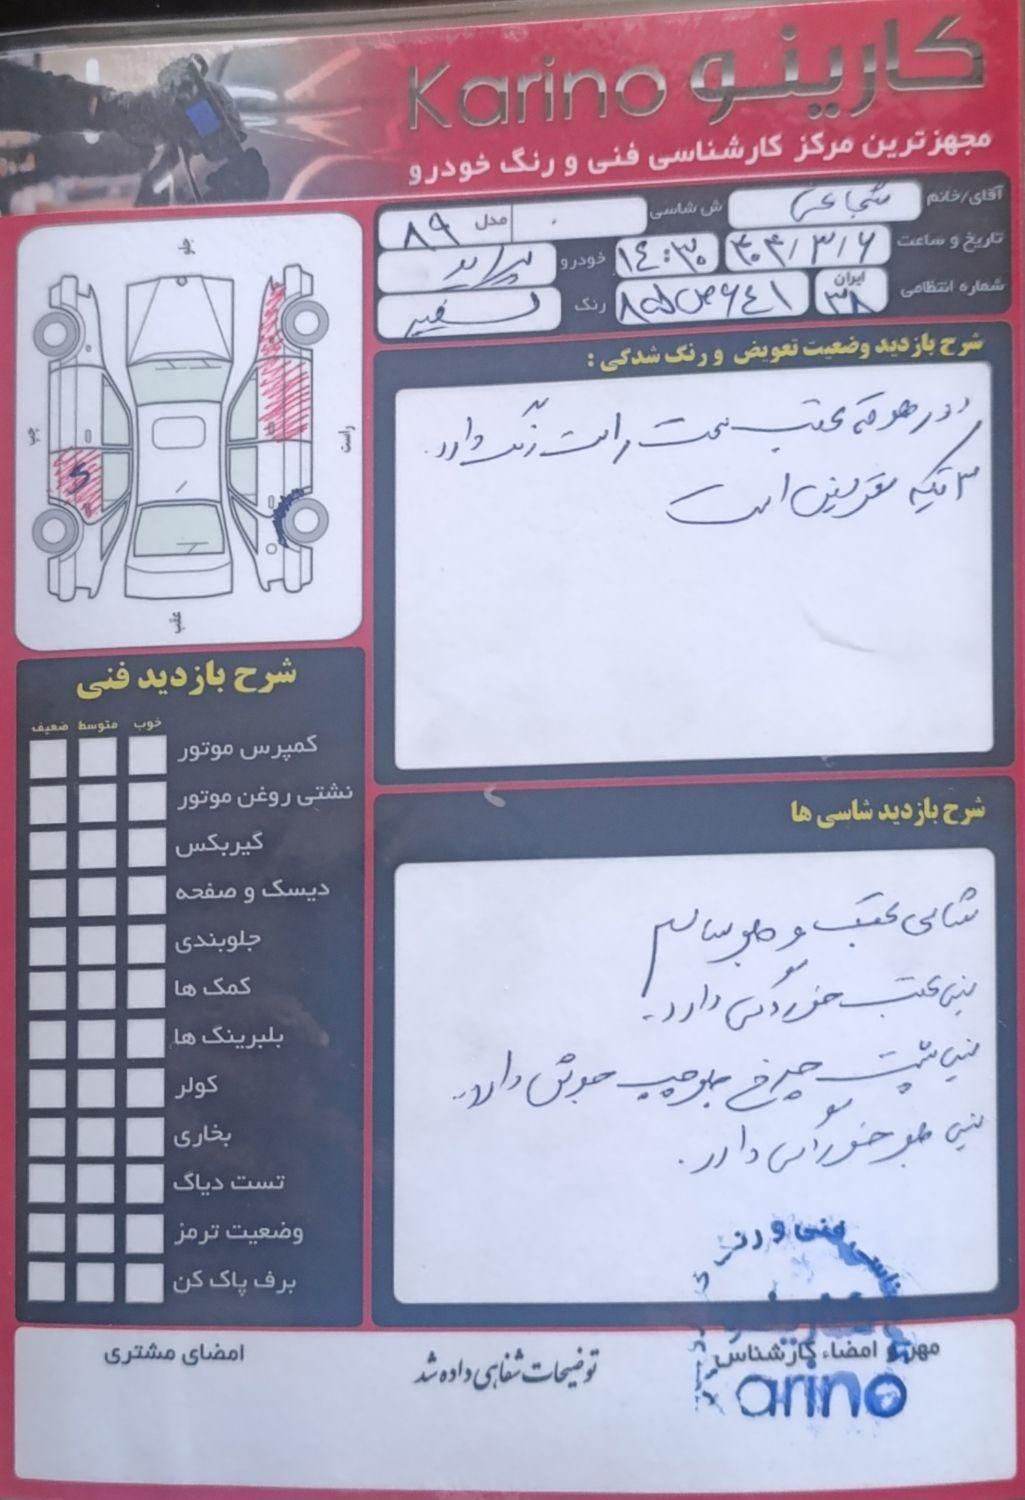 کارینو Karino
مجهزترین مرکز کارشناسی فنی و رنگ خودرو
آقای/خانم شجاعی ش شاسی مدل ۸۹
تاریخ و ساعت ۴۰۴/۳/۶ ۱۴:۳۰ خودرو پراید
شماره انتظامی ایران ۳۸ ۶۴۱ ص ۸۵ رنگ سفید
شرح بازدید وضعیت تعویض و رنگ شدگی :
دور حلقه عقب سمت راست رنگ دارد.
۳ تکیه تعویض است
جلو
چپ
راست
عقب
S
شرح بازدید فنی
خوب متوسط ضعیف
کمپرس موتور
نشتی روغن موتور
گیربکس
دیسک و صفحه
جلوبندی
کمک ها
بلبرینگ ها
کولر
بخاری
تست دیاگ
وضعیت ترمز
برف پاک کن
شرح بازدید شاسی ها
شاسی عقب و جلو سالم
سینی عقب خوردگی دارد.
سینی پشت چرخ جلو چپ جوش دارد.
سینی جلو خوردگی دارد.
مهر و امضاء کارشناس
توضیحات شفاهی داده شد
امضای مشتری
arino